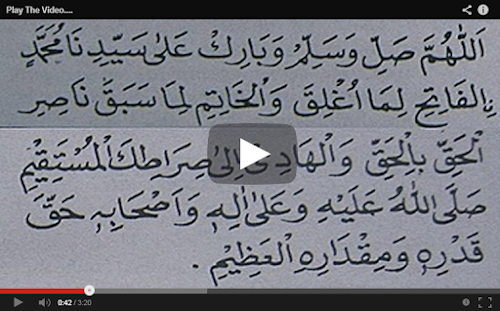 Play The Video....
اَللّٰهُمَّ صَلِّ وَسَلِّمْ وَبَارِكْ عَلىٰ سَيِّدِنَا مُحَمَّدٍ
نِالْفَاتِحِ لِمَا اُغْلِقَ وَالْخَاتِمِ لِمَا سَبَقَ نَاصِرِ
الْحَقِّ بِالْحَقِّ وَالْهَادِىْ اِلىٰ صِرَاطِكَ الْمُسْتَقِيْمِ
صَلَّى اللهُ عَلَيْهِ وَعَلىٰ اٰلِهٖ وَاَصْحَابِهٖ حَقَّ
قَدْرِهٖ وَمِقْدَارِهِ الْعَظِيْمِ .
0:42 / 3:20